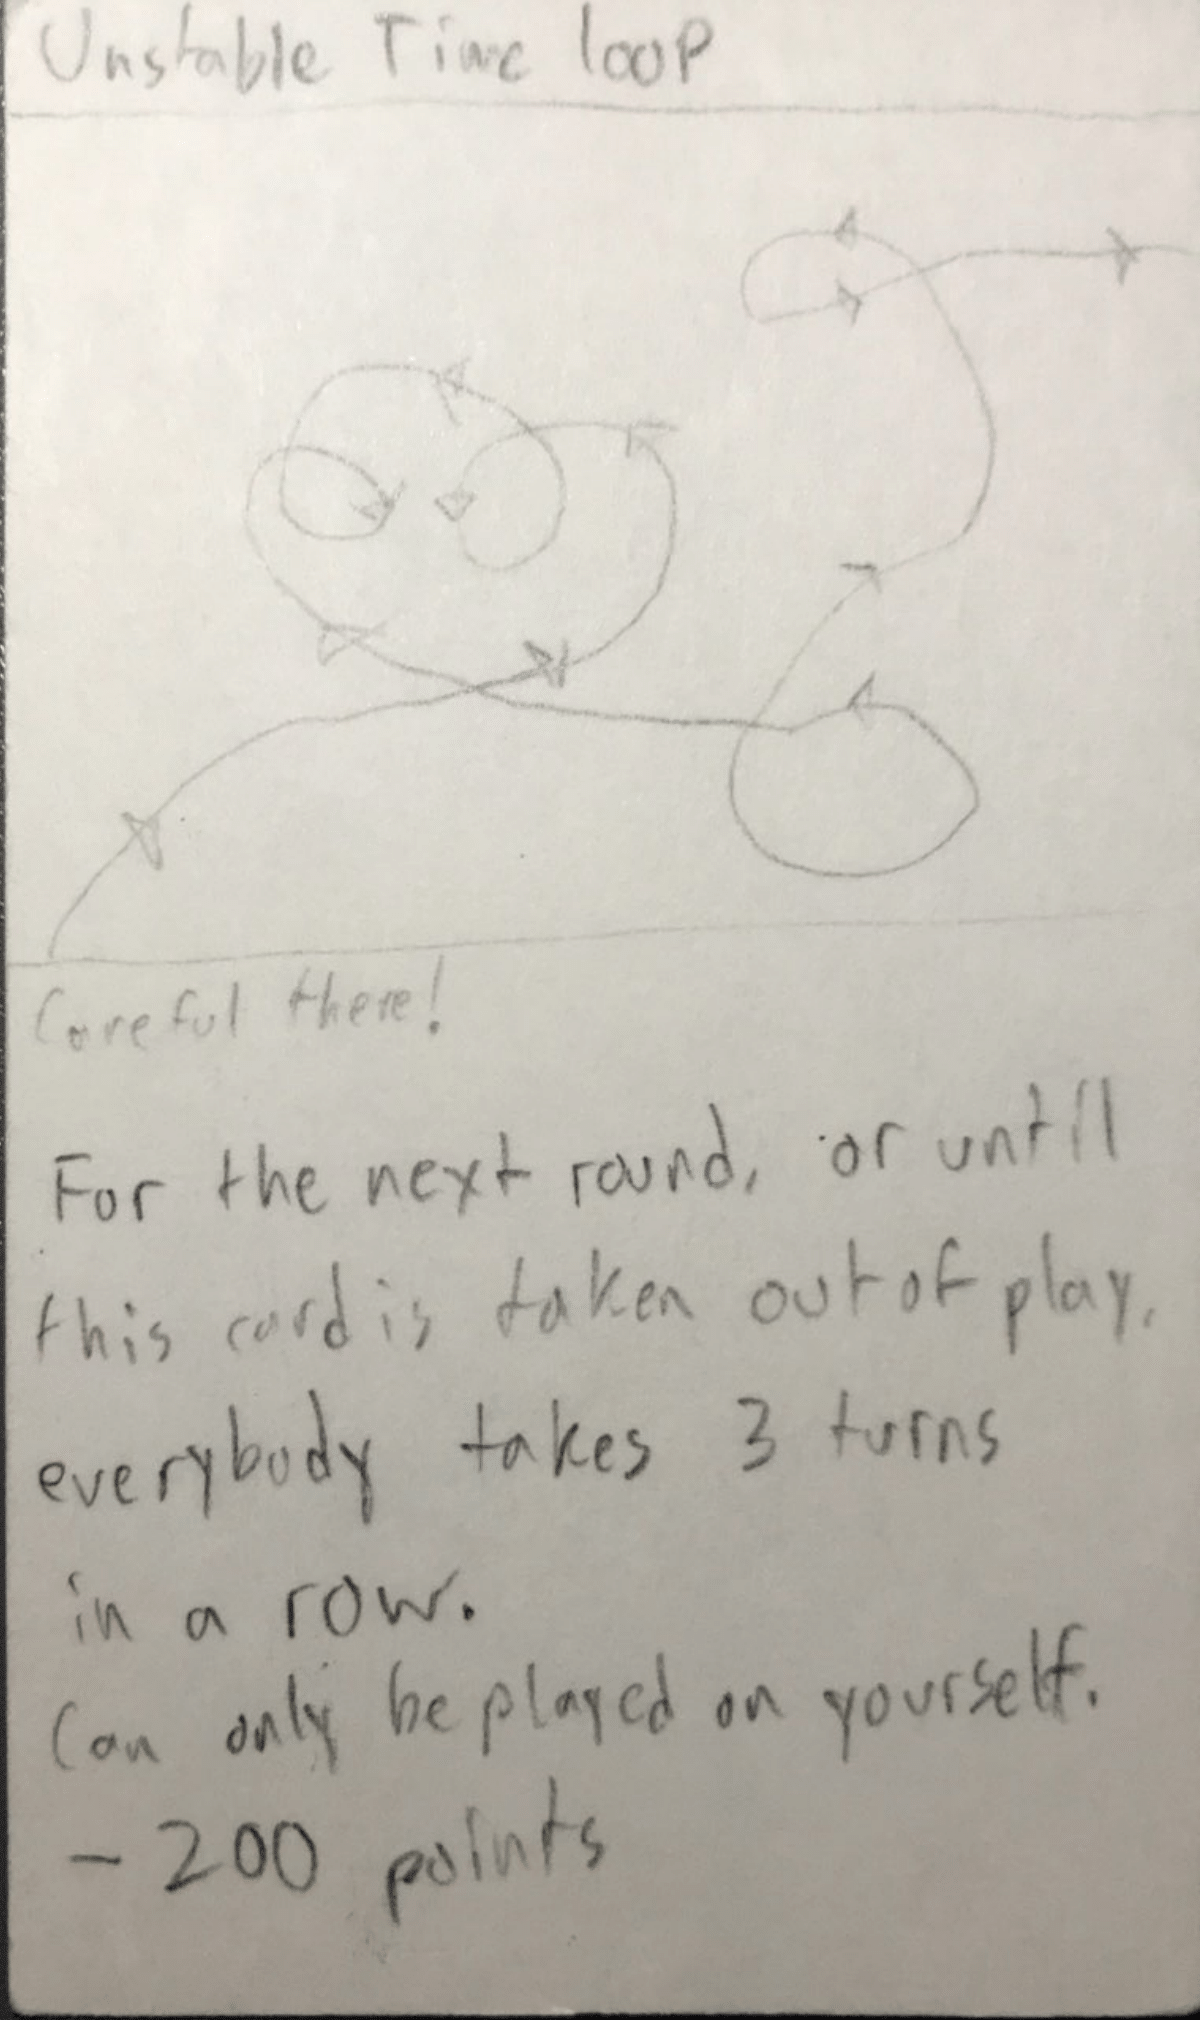 Unstable Time loop
Careful there!
For the next round, or until
this card is taken out of play,
everybody takes 3 turns
in a row.
Can only be played on yourself.
- 200 points